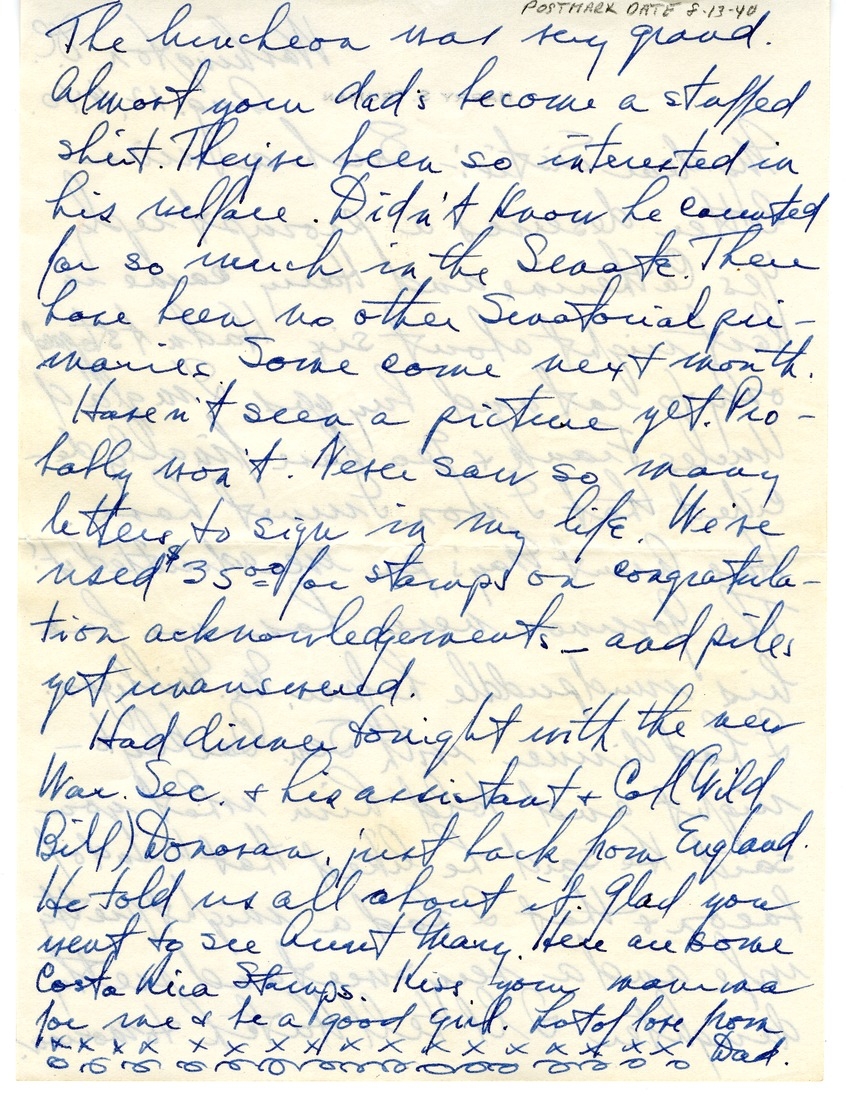 POSTMARK DATE 8-13-40
The luncheon was very grand.
Almost your dad's become a stuffed
shirt. They've been so interested in
his welfare. Didn't know he counted
for so much in the Senate. There
have been no other Senatorial pri-
maries Some come next month.
Haven't seen a picture yet. Pro-
bally won't. Never saw so many
letters to sign in my life. We've
used $35 00 for stamps on congratula-
tion acknowledgements - and piles
yet unanswered.
Had dinner tonight with the new
War. Sec. & his assistant & Col (Wild
Bill) Donovan, just back from England.
He told us all about it. Glad you
went to see Aunt Mary. Here are some
Costa Rica Stamps. Kiss your mamma
for me & be a good girl. Lots of love from
x x x x x x x x x x x x x x x x x x Dad.
o o o o o o o o o o o o o o o o o o o